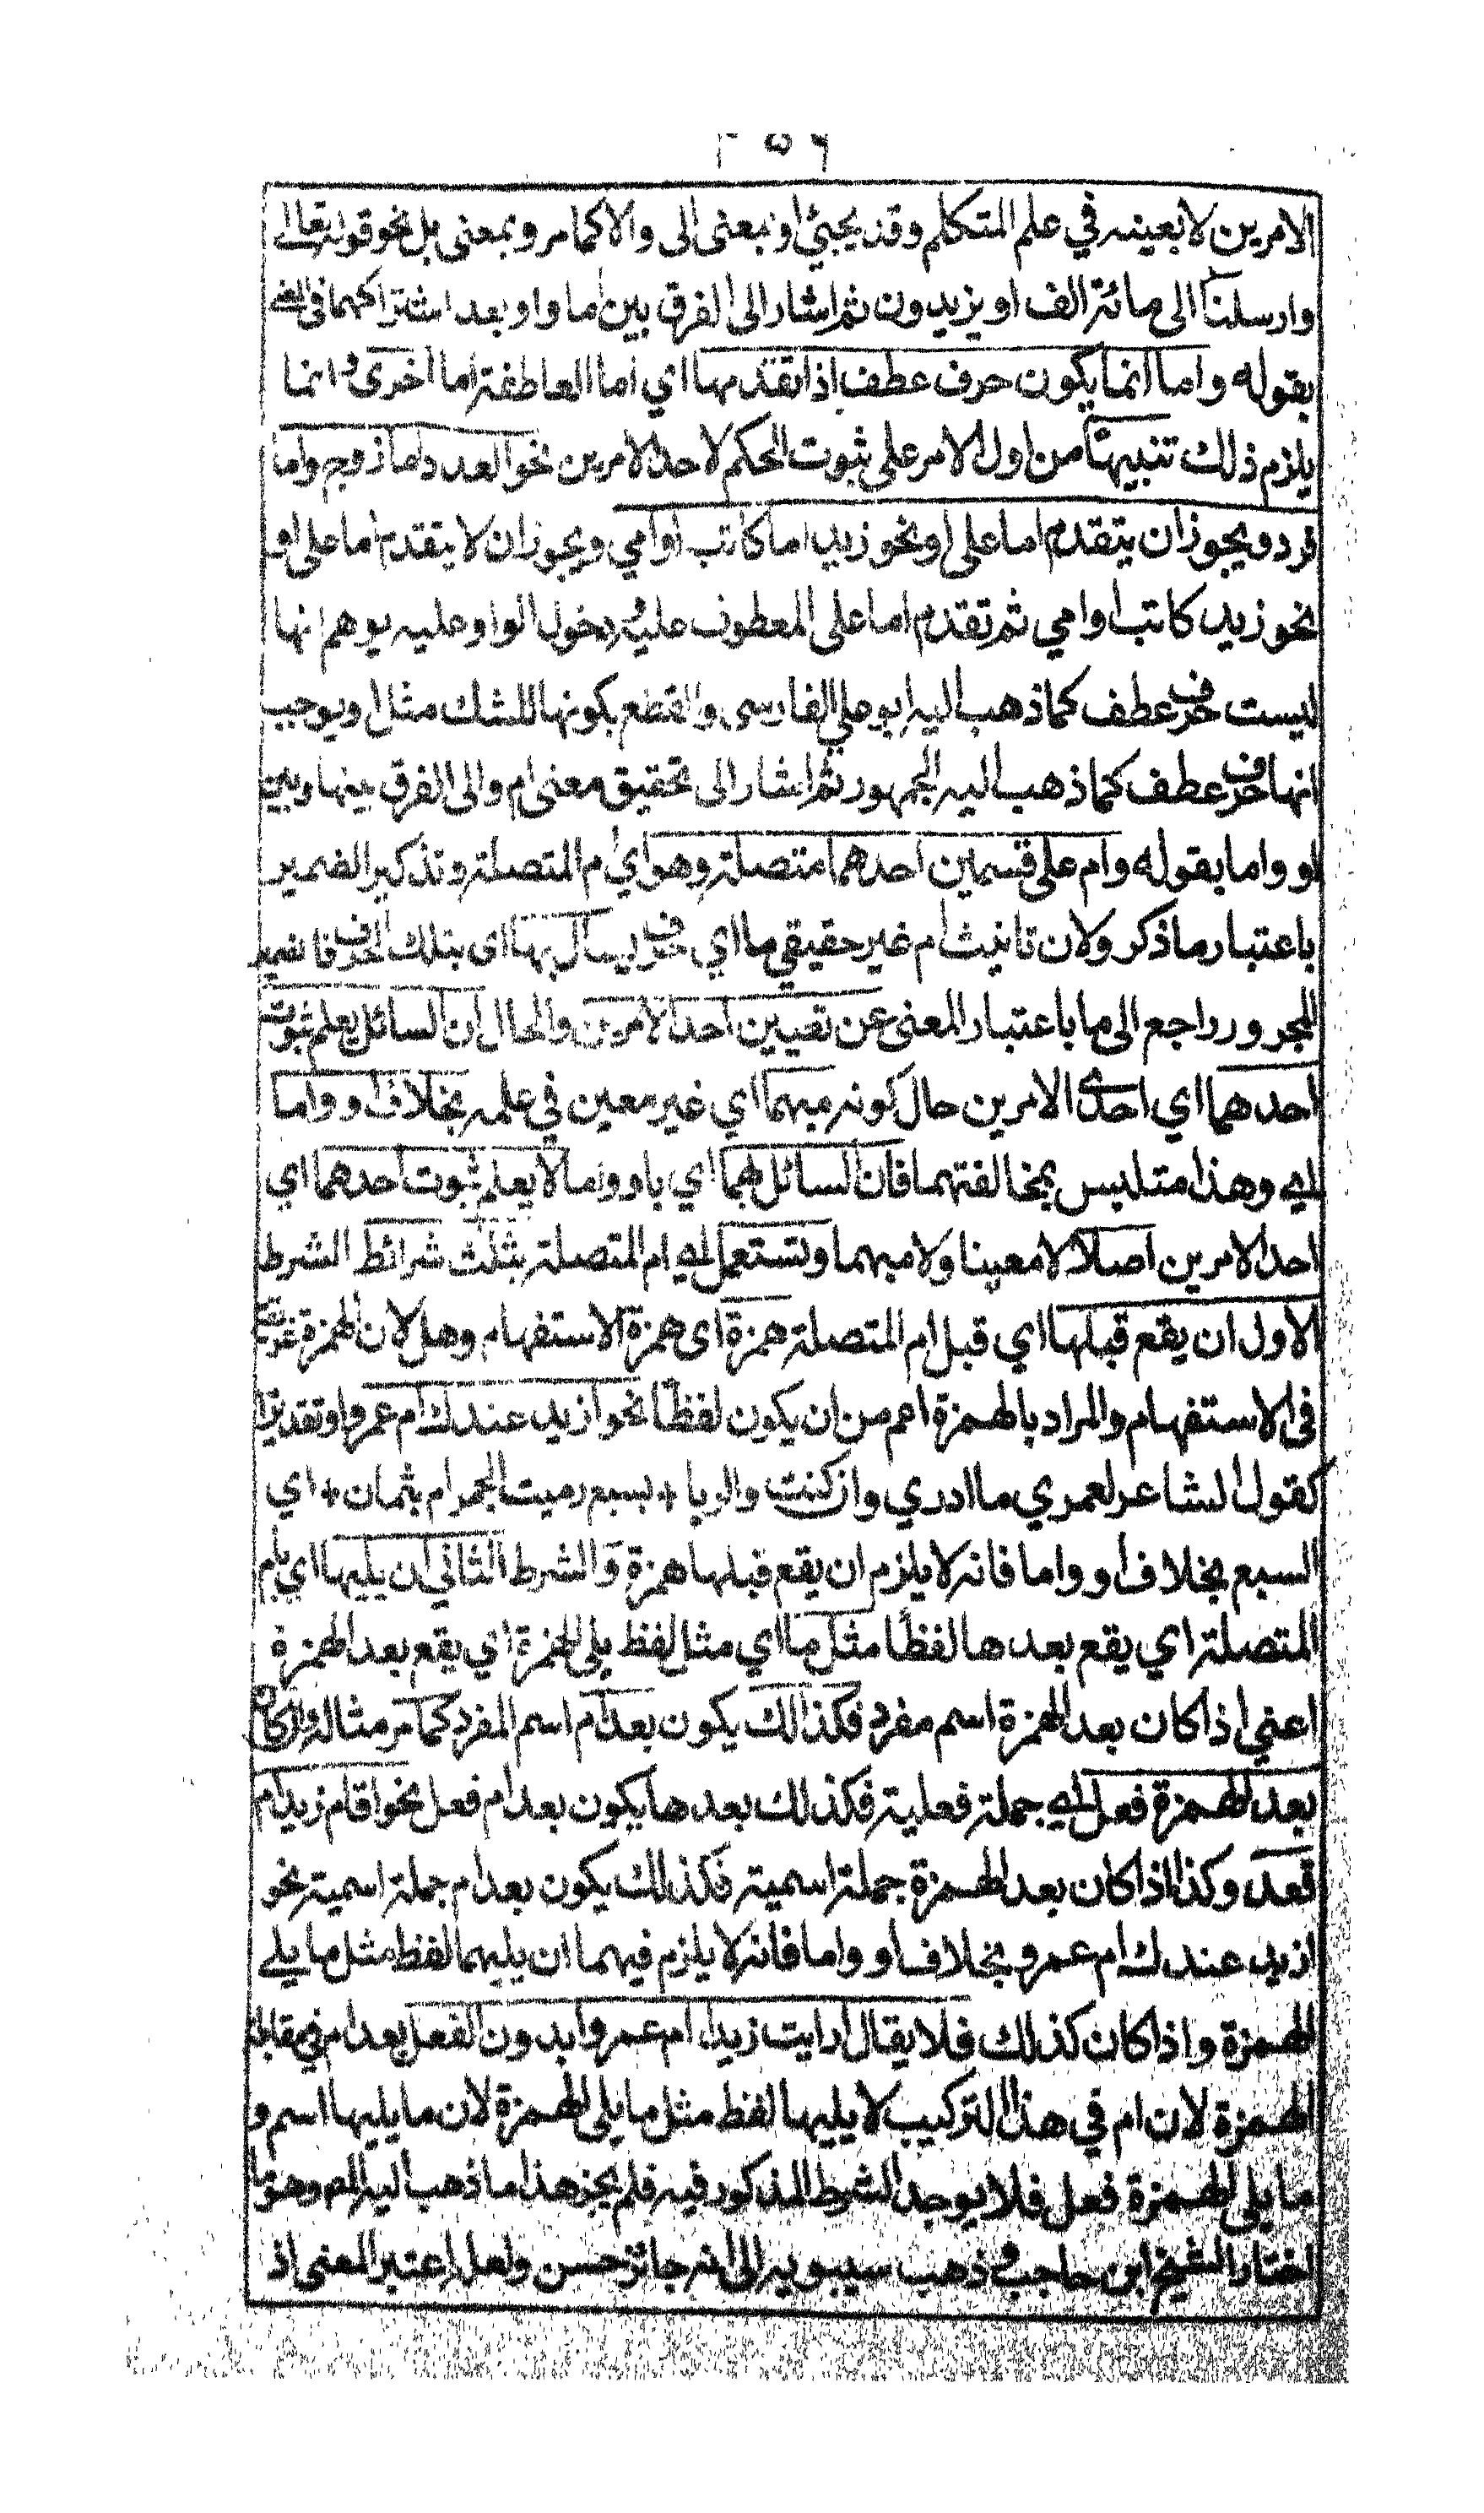 الامرين لا بعينه في علم المتكلم وقد يجيئ او بمعنى الى والا كما مر وبمعنى بل نحو قوله تعالى
وارسلنا الى مائة الف او يزيدون ثم اشار الى الفرق بين اما واو بعد اشتراكهما فى
بقوله واما انما يكون حرف عطف اذا تقدمها اي اما العاطفة اما اخرى وانما
يلزم ذلك تنبيها من اول الامر على ثبوت الحكم لاحد الامرين نحو العدد اما زوج واما
فرد ويجوز ان يتقدم اما على او نحو زيد اما كاتب او امي ويجوز ان لا يتقدم اما على او
نحو زيد كاتب او امي ثم تقدم اما على المعطوف عليه ودخول الواو عليه يوهم انها
ليست حرف عطف كما ذهب اليه ابو علي الفارسى والقطع بكونها للشك مثل او يوجب
انها حرف عطف كما ذهب اليه الجمهور ثم اشار الى تحقيق معنى ام والى الفرق بينها وبين
او واما بقوله وام على قسمين احدهما متصلة وهو اي ام المتصلة وتذكير الضمير
باعتبار ما ذكر ولان تانيث ام غير حقيقي ما اي حرف يسال بها اى بتلك الحرف فالضمير
المجرور راجع الى ما باعتبار المعنى عن تعيين احد الامرين والحال ان السائل يعلم ثبوت
احدهما اي احدى الامرين حال كونه مبهما اي غير معين في علمه بخلاف او واما
اي وهذا متلبس بمخالفتهما فان السائل بهما اي باو واما لا يعلم ثبوت احدهما اي
احد الامرين اصلا لا معينا ولا مبهما وتستعمل اي ام المتصلة بثلث شرائط الشرط
الاول ان يقع قبلها اي قبل ام المتصلة همزة اى همزة الاستفهام وهل لان الهمزة
فى الاستفهام والمراد بالهمزة اعم من ان يكون لفظا نحو ازيد عندك ام عمرو او تقديرا
كقول الشاعر لعمري ما ادري وان كنت داريا + بسبع رميت الجمر ام بثمان + اي
السبع بخلاف او واما فانه لا يلزم ان يقع قبلها همزة والشرط الثاني ان يليها اي يلي ام
المتصلة اي يقع بعدها لفظا مثل ما اي مثل لفظ يلى الهمزة اي يقع بعد الهمزة
اعني اذا كان بعد الهمزة اسم مفرد فكذالك يكون بعد ام اسم المفرد كما مر مثاله وان كان
بعد الهمزة فعل اي جملة فعلية فكذلك بعدها يكون بعد ام فعل نحو اقام زيد ام
قعد وكذا اذا كان بعد الهمزة جملة اسمية فكذالك يكون بعد ام جملة اسمية نحو
ازيد عندك ام عمرو بخلاف او واما فانه لا يلزم فيهما ان يليهما لفظ مثل ما يلي
الهمزة واذا كان كذلك فلا يقال ارايت زيدا ام عمروا بدون الفعل بعد ام في مقابلة
الهمزة لان ام في هذا التركيب لا يليها لفظ مثل ما يلى الهمزة لان ما يليها اسم و
ما يلى الهمزة فعل فلا يوجد الشرط المذكور فيه فلم يجز هذا ما ذهب اليه المص وهو ما
اختار الشيخ ابن حاجب وذهب سيبويه الى انه جائز حسن ولعله اعتبر المعنى اذ